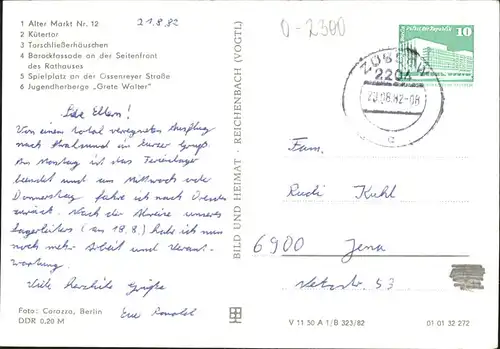 1 Alter Markt Nr. 12
2 Kütertor
3 Torschließerhäuschen
4 Barockfassade an der Seitenfront
des Rathauses
5 Spielplatz an der Ossenreyer Straße
6 Jugendherberge „Grete Walter"
21.8.82
Liebe Eltern!
Von einem total verregneten Ausflug
nach Stralsund ein kurzer Gruß.
Am Montag ist das Ferienlager
beendet und am Mittwoch oder
Donnerstag fahre ich nach Dresden
zurück. Nach der Abreise unseres
Lagerleiters (am 18.8.) habe ich nun
noch mehr Arbeit und Verant-
wortung.
Viele herzliche Grüße
Foto: Carazza, Berlin
Eure
DDR 0,20 M
BILD UND HEIMAT · REICHENBACH (VOGTL)
0-2300
10
2204
-08
c
Fam.
Rudi Kuhl
6900 Jena
53
V 11 50 A 1/B 323/82
01 01 32 272